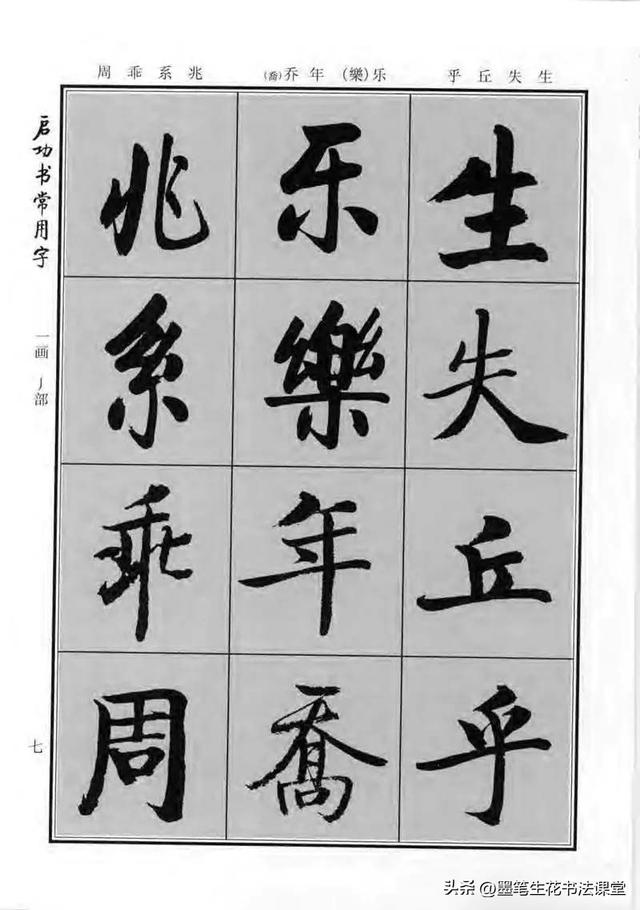 周乖系兆
(喬)乔年(樂)乐
乎丘失生
启功书常用字
一画丿部
七
生失丘乎
乐樂年喬
兆系乖周
头条 @墨笔生花书法课堂